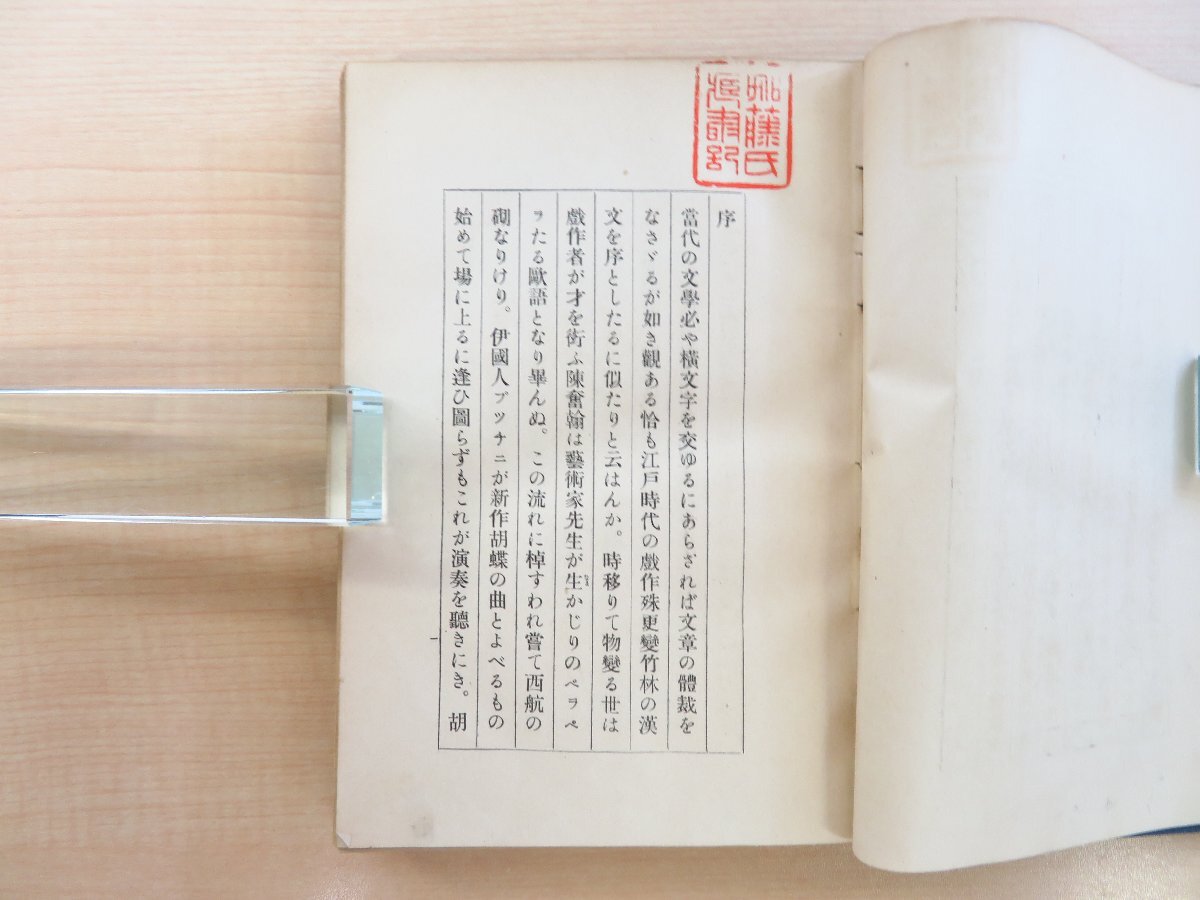 藤氏
序
當代の文學必や橫文字を交ゆるにあらざれば文章の體裁を
なさゞるが如き觀ある恰も江戶時代の戲作殊更變竹林の漢
文を序としたるに似たりと云はんか。時移りて物變る世は
戲作者が才を衒ふ陳奮翰は藝術家先生が生かじりのペラペ
ラたる歐語となり畢んぬ。この流れに棹すわれ嘗て西航の
砌なりけり。伊國人プッチニが新作胡蝶の曲とよべるもの
始めて場に上るに逢ひ圖らずもこれが演奏を聽きにき。胡
一